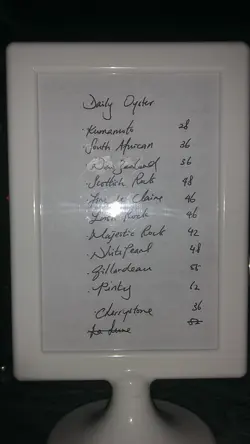 Daily Oyster
· Kumamoto 28
· South African 36
· New Zealand 36
· Scottish Rock 48
· Fin de Claire 46
· Loch Rock 46
· Majestic Rock 42
· White Pearl 48
· Gillardeau 55
· Pinky 62
· Cherrystone 36